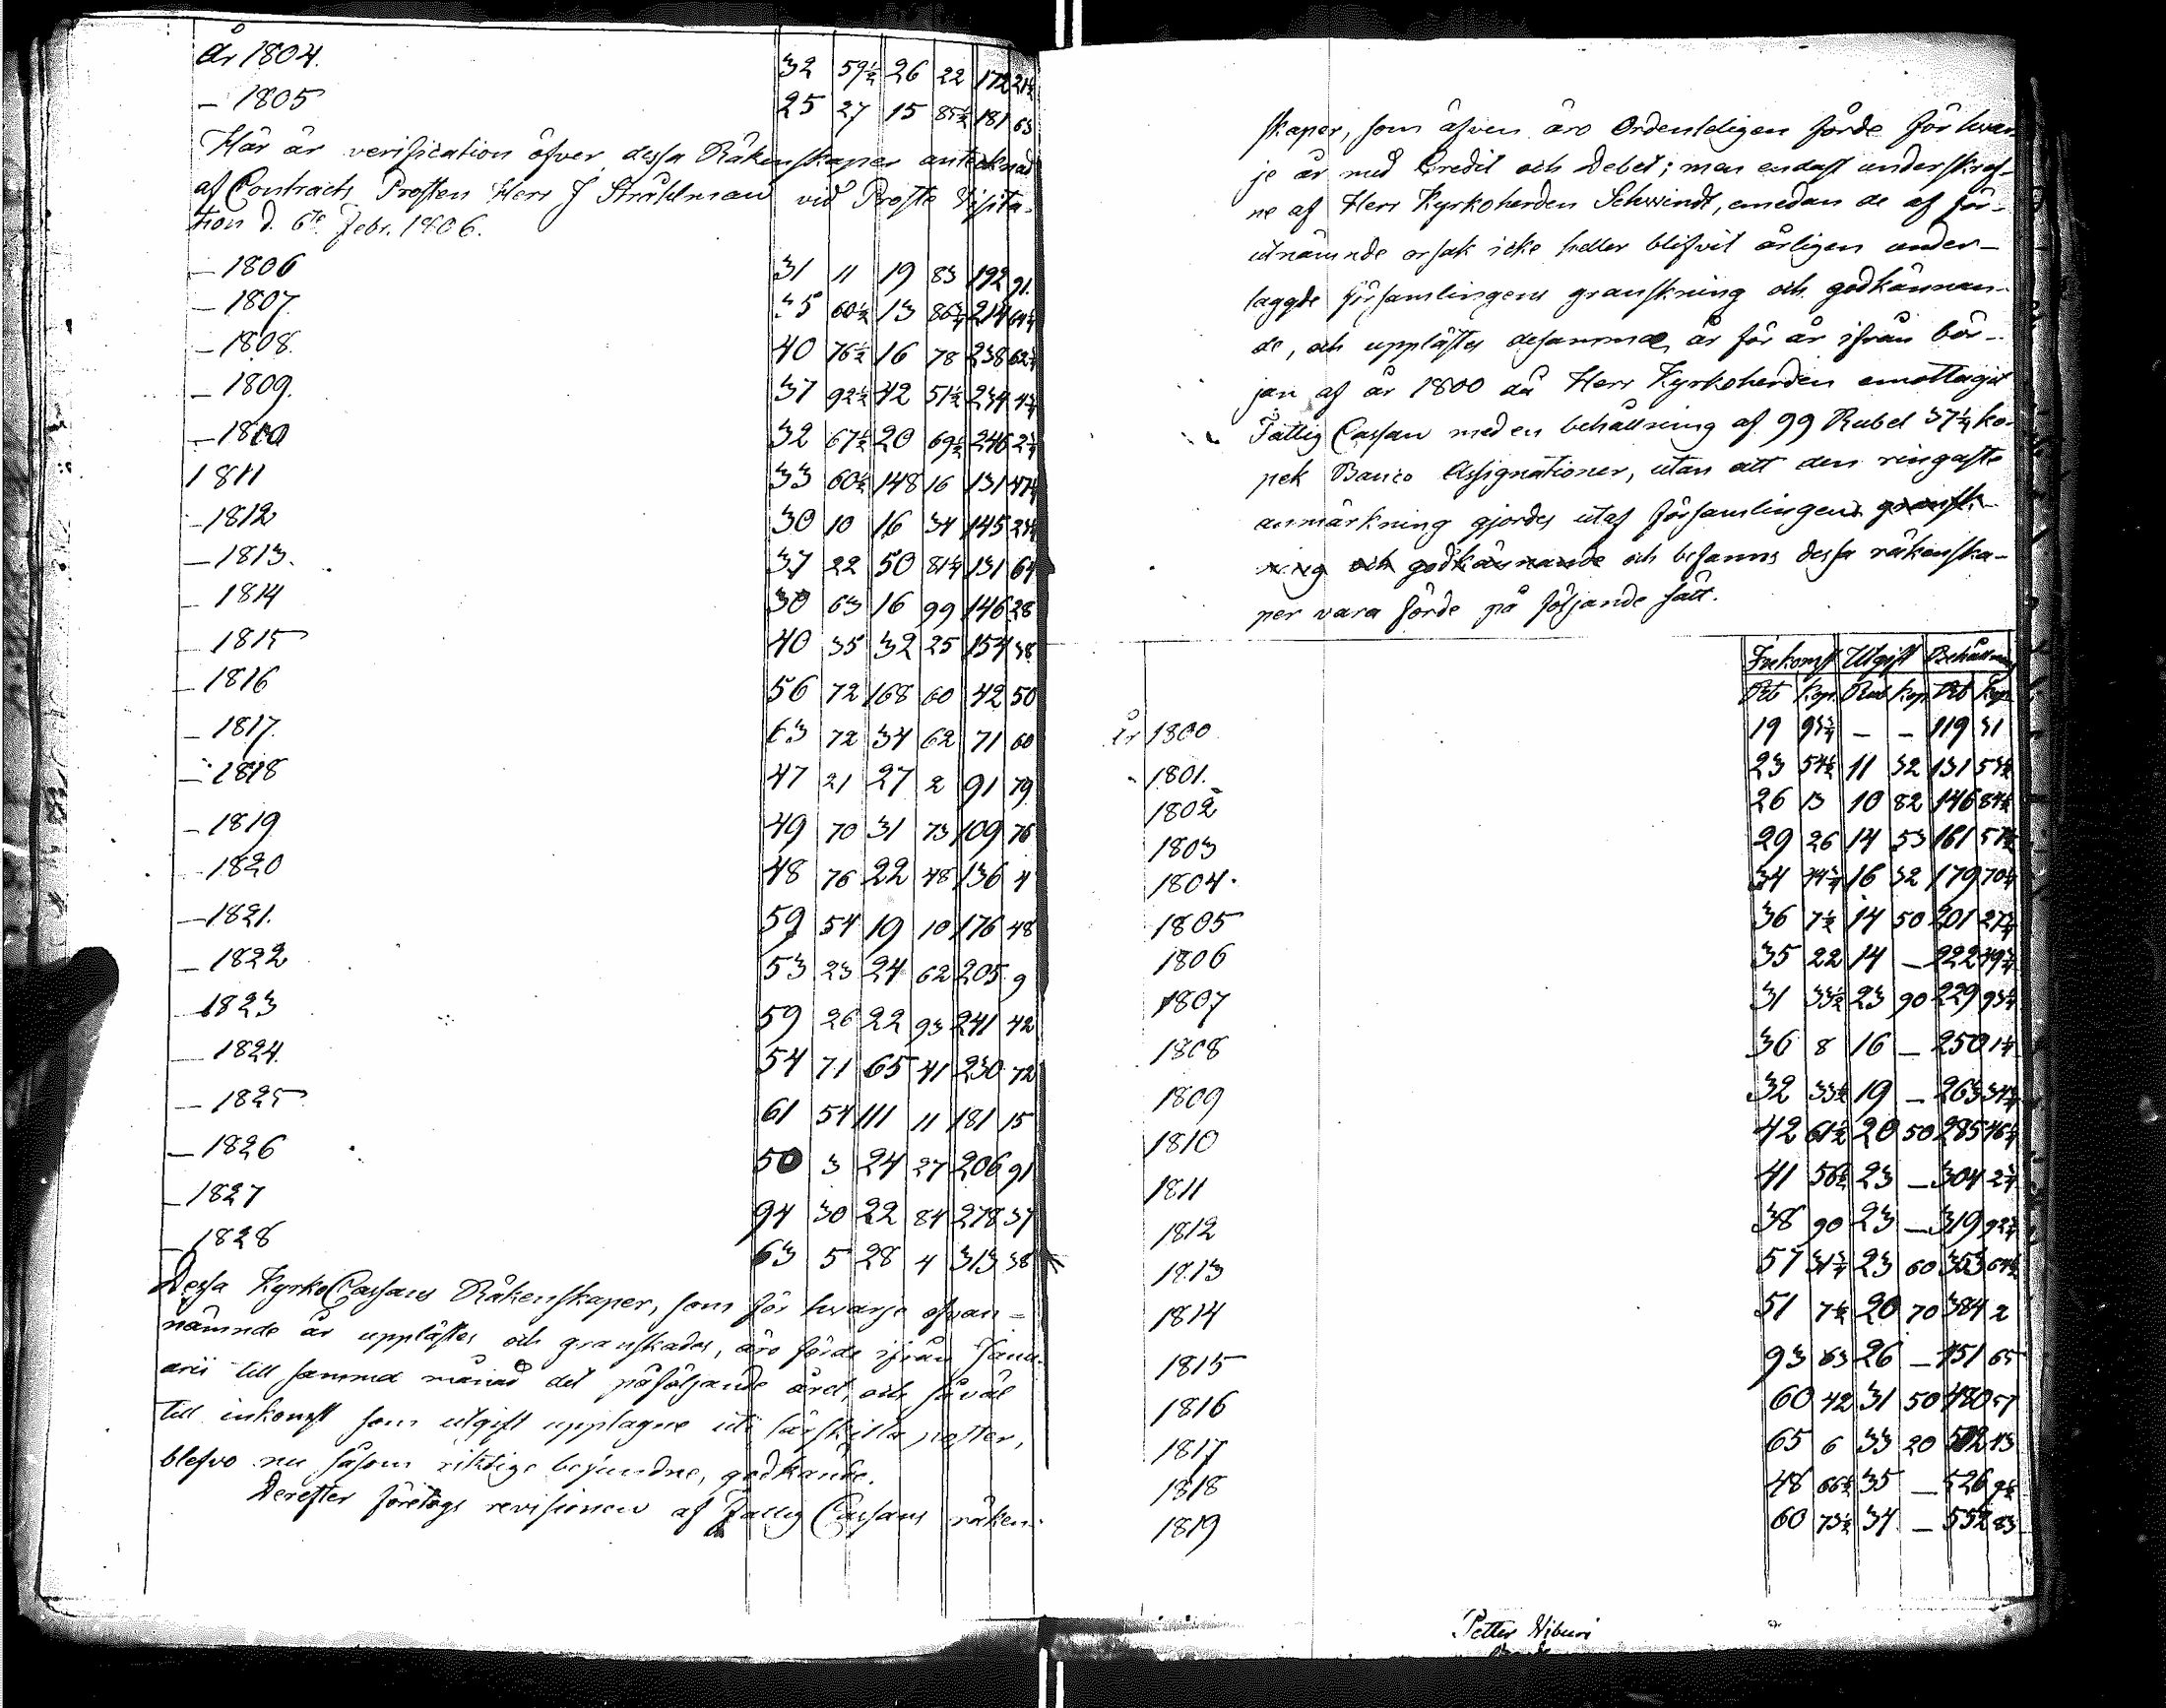 År 1804. 32 59½ 26 22 172 21½
— 1805 25 27 15 85½ 181 63
Här är verification öfver dessa Räkenskaper antecknad
af Contracts Prosten Herr J Stråhlman vid Proste Visita-
tion d. 6te Febr. 1806.
— 1806 31 11 19 83 192 91.
— 1807. 35 60½ 13 86¾ 214 64¾
— 1808. 40 76½ 16 78 238 62¾
— 1809. 37 92½ 42 51½ 234 4¾
— 1810 32 67½ 20 69½ 246 2¾
1811 33 60½ 148 16 131 47¼
— 1812 30 10 16 34 145 23¼
— 1813. 37 22 50 81¼ 131 64
— 1814 30 63 16 99 146 28
— 1815 40 35 32 25 154 38
— 1816 56 72 168 60 42 50
— 1817. 63 72 34 62 71 60
— 1818 47 21 27 2 91 79
— 1819 49 70 31 73 109 76
— 1820 48 76 22 48 136 4
— 1821. 59 54 19 10 176 48
— 1822 53 23 24 62 205 9
— 1823 59 26 22 93 241 42
— 1824. 54 71 65 41 230 72
— 1825 61 54 111 11 181 15
— 1826 50 3 24 27 206 91
— 1827 94 30 22 84 278 37
— 1828 63 5 28 4 313 38
Dessa Kyrko Cassans Räkenskaper, som för hwarje ofvan-
nämnde år upplästes och granskades, äro förde ifrån Janu-
arii till samma månad det påföljande året, och såväl
till inkomst som utgift upptagne uti särskilta poster,
blefvo nu såsom riktige befundne, godkände.
Derefter företogs revisionen af Fattig Cassans räken-
skaper, som äfven äro Ordenteligen förde för hwar-
je år med Credit och Debet; men endast underskref-
ne af Herr Kyrkoherden Schwindt, emedan de af för-
utnämnde orsak icke heller blifvit årligen under-
laggde församlingens granskning och godkännan-
de, och upplästes desamma år för år ifrån bör-
jan af år 1800 då Herr Kyrkoherden emottagit
Fattig Cassan med en behållning af 99 Rubel 37¼ ko-
pek Banco Assignationer, utan att den ringaste
anmärkning gjordes utaf församlingens gransk-
ning och godkännande och befanns dessa räkenska-
per vara förde på följande sätt.
Inkomst Utgift Behållning
Rb Kop. Rub Kop. Rb Kop
År 1800 19 93¾ — — 119 31
1801. 23 54½ 11 32 131 53½
1802 26 13 10 82 146 84½
1803 29 26 14 53 161 57½
1804. 34 44¾ 16 32 179 70¼
1805 36 7½ 14 50 201 27¾
1806 35 22 14 — 222 49¾
1807 31 33½ 23 90 229 93¼
1808 36 8 16 — 250 1¼
1809 32 33½ 19 — 263 34¾
1810 42 61½ 20 50 285 46¼
1811 41 56½ 23 — 304 2¾
1812 38 90 23 — 319 92¾
1813 57 31¾ 23 60 353 64½
1814 51 7½ 20 70 384 2
1815 93 63 26 — 451 65
1816 60 42 31 50 480 57
1817 65 6 33 20 512 43
1818 48 66½ 35 — 526 9½
1819 60 73½ 34 — 552 83
Petter Hiburi